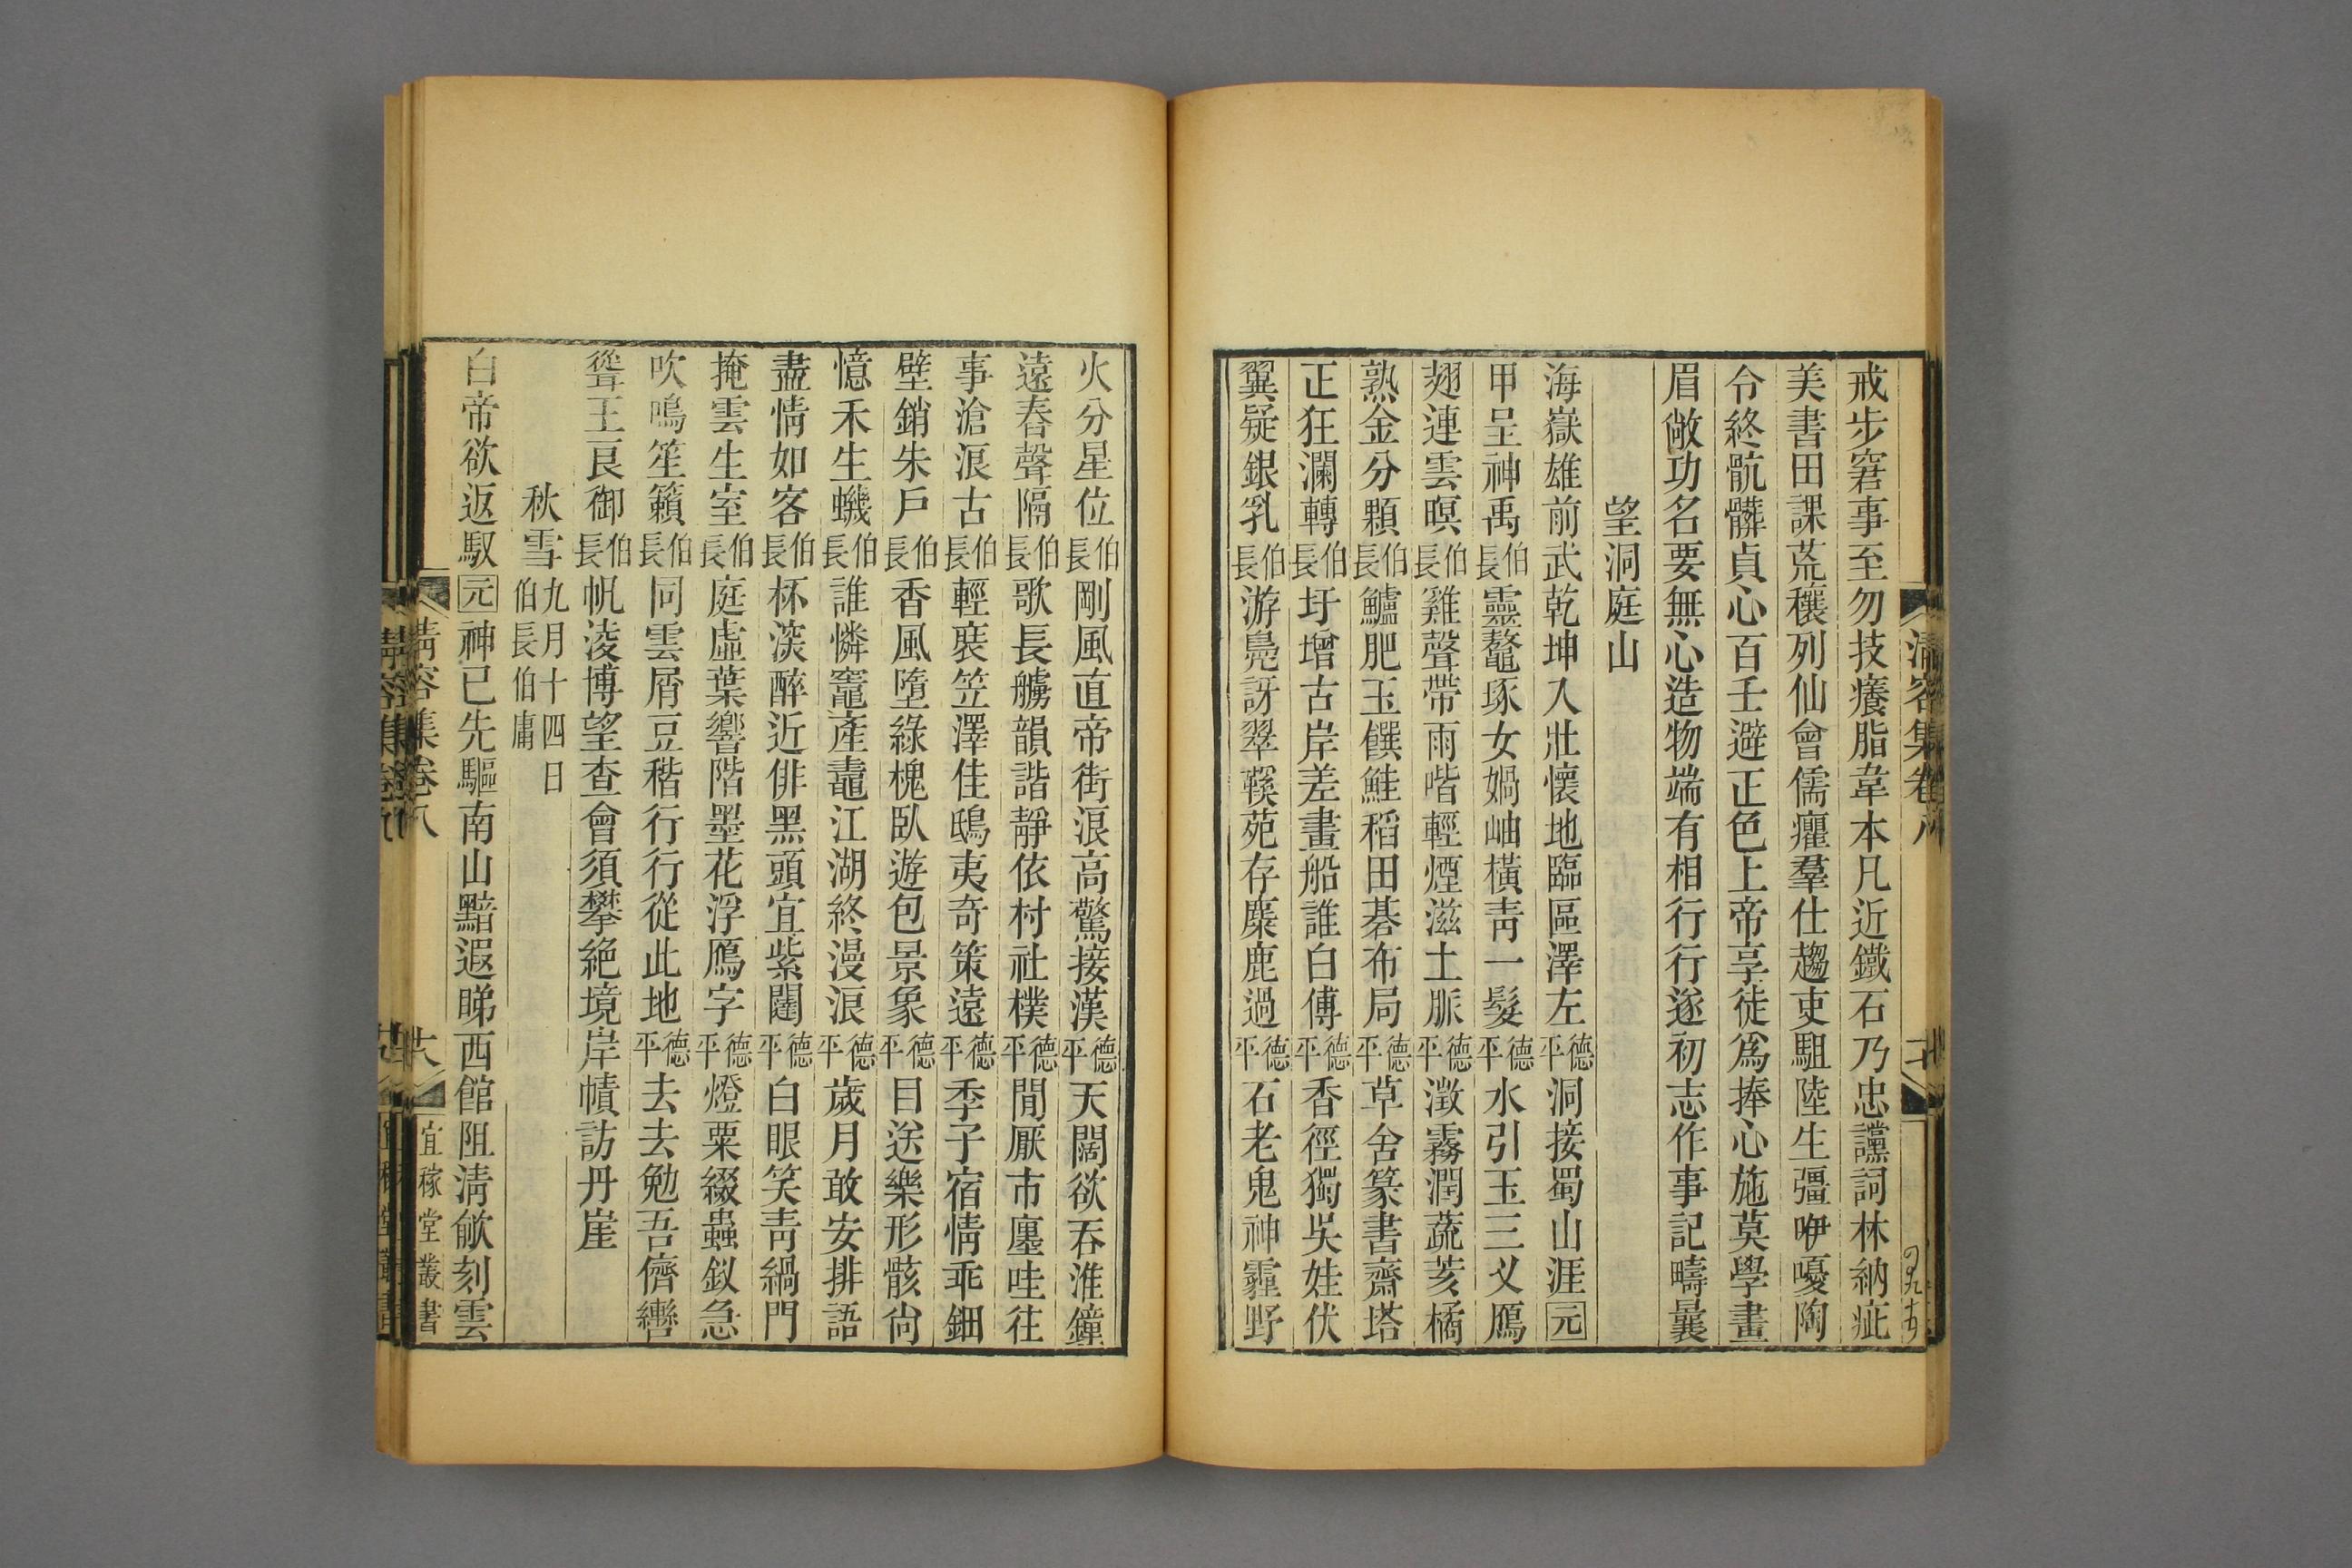 戒步窘事至勿技癢脂韋本凡近鐵石乃忠讜詞林納疵
美書田課荒穰列仙會儒癯羣仕趨吏駔陸生彊咿嚘陶
令終骯髒貞心百壬避正色上帝享徒爲捧心施莫學畫
眉敞功名要無心造物端有相行行遂初志作事記疇曩
望洞庭山
海嶽雄前武乾坤入壯懷地臨區澤左德平洞接蜀山涯元
甲呈神禹伯長靈鼇琢女媧岫橫靑一髮德平水引玉三乂鴈
翅連雲暝伯長雞聲帶雨喈輕煙滋土脈德平澂霧潤蔬荄橘
熟金分顆伯長鱸肥玉饌鮭稻田碁布局德平草舍篆書齋塔
正狂瀾轉伯長圩增古岸差畫船誰白傅德平香徑獨吳娃伏
翼疑銀乳伯長游鳧訝翠鞵苑存麋鹿過德平石老鬼神霾野
火分星位伯長剛風直帝街浪高驚接漢德平天闊欲吞淮鐘
遠舂聲隔伯長歌長艣韻諧靜依村社樸德平閒厭市廛哇往
事滄浪古伯長輕裝笠澤佳鴟夷奇策遠德平季子宿情乖鈿
壁銷朱戶伯長香風墮綠槐臥遊包景象德平目送樂形骸尙
憶禾生蟣伯長誰憐竈產鼃江湖終漫浪德平歲月敢安排語
盡情如客伯長杯深醉近俳黑頭宜紫闥德平白眼笑靑緺門
掩雲生室伯長庭虛葉響階墨花浮鴈字德平燈粟綴蟲釵急
吹鳴笙籟伯長同雲屑豆稭行行從此地德平去去勉吾儕轡
聳王良御伯長帆淩博望查會須攀絶境岸幘訪丹崖
秋雪九月十四日伯長伯庸
白帝欲返馭元神已先驅南山黯遐睇西館阻淸歈刻雲
淸容集卷八
宜稼堂叢書